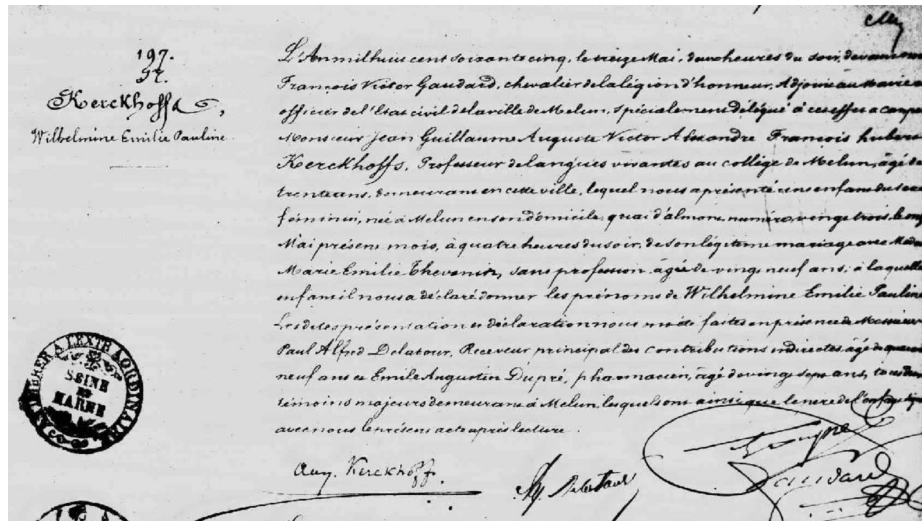 197.
57.
Kerckhoffs,
Wilhelmine Emilie Pauline
L'An mil huit cent soixante cinq, le treize Mai, deux heures du soir, devant nous
François Victor Gaudard, chevalier de la légion d'honneur, Adjoint au Maire
officier de l'Etat civil de la ville de Melun, Spécialement délégué à cet effet a comparu
Monsieur Jean Guillaume Auguste Victor Alexandre François hubert
Kerckhoffs, Professeur de langues vivantes au collège de Melun, âgé de
trente ans, demeurant en cette ville, lequel nous a présenté un enfant du sexe
féminin, née à Melun en son domicile quai d'almont, numéro vingt trois, le onze
Mai présent mois, à quatre heures du soir, de son légitime mariage avec
Marie Emilie Thevenin, sans profession, âgée de vingt neuf ans; à laquelle
enfant il nous a déclaré donner les prénoms de Wilhelmine Emilie Pauline
Lesdites présentation et déclaration nous ont été faites en présence de Messieurs
Paul Alfred Delatour, Receveur principal des contributions indirectes, âgé de quarante
neuf ans et Emile Augustin Dupré, pharmacien, âgé de vingt sept ans, tous deux
témoins majeurs demeurant à Melun, lesquels ont ainsi que le père de l'enfant signé
avec nous le présent acte après lecture.
SEINE
ET
MARNE
TIMBRE A L'EXTRAORDINAIRE
Aug. Kerckhoffs.
Delatour
Dupré
Gaudard